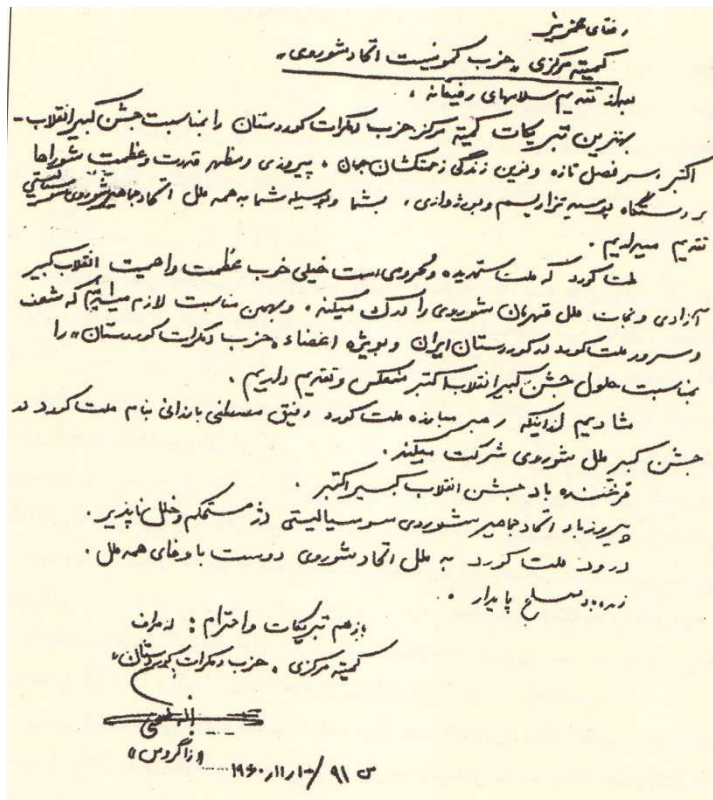 رفقای عزیز
کمیته مرکزی «حزب کمونیست اتحاد شوروی»
بعد از تقدیم سلامهای رفیقانه ،
بهترین تبریکات کمیته مرکز حزب دمکرات کوردستان را بمناسبت جشن کبیر انقلاب -
اکتبر ، سر فصل تازه و نوین زندگی زحمتکشان جهان ، پیروزی و مظهر قدرت و عظمت شوراها
بر دستگاه پوسیده تزاریسم و بورژوازی ، بشما و بوسیله شما به همه ملل اتحاد جماهیر شوروی سوسیالیستی
تقدیم میداریم .
ملت کورد که ملت ستمدیده و محرومی است خیلی خوب عظمت و اهمیت انقلاب کبیر
آزادی و نجات ملل قهرمان شوروی را درک میکند . و بهمین مناسبت لازم میدانیم که شعف
و سرور ملت کورد در کوردستان ایران و بویژه اعضاء «حزب دمکرات کوردستان» را
بمناسبت حلول جشن کبیر انقلاب اکتبر منعکس و تقدیم داریم .
شادیم از اینکه رهبر مبارزه ملت کورد رفیق مصطفی بارزانی بنام ملت کورد در
جشن کبیر ملل شوروی شرکت میکند .
فرخنده باد جشن انقلاب کبیر اکتبر .
پیروز باد اتحاد جماهیر شوروی سوسیالیستی دژ مستحکم و خلل ناپذیر .
درود ملت کورد به ملل اتحاد شوروی دوست با وفای همه ملل .
زنده باد صلح پایدار .
بازهم تبریکات و احترام : از طرف
کمیته مرکزی «حزب دمکرات کوردستان»
«زاگروس»
س ۹۱ / ۱۰ ر ۱۱ ر ۱۹۶۰